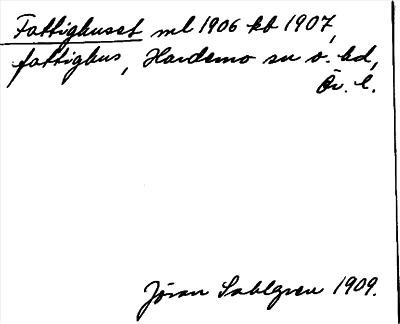 Fattighuset ml 1906 kb 1907,
fattighus, Hardemo sn o. hd,
Ör. l.
Jöran Sahlgren 1909.